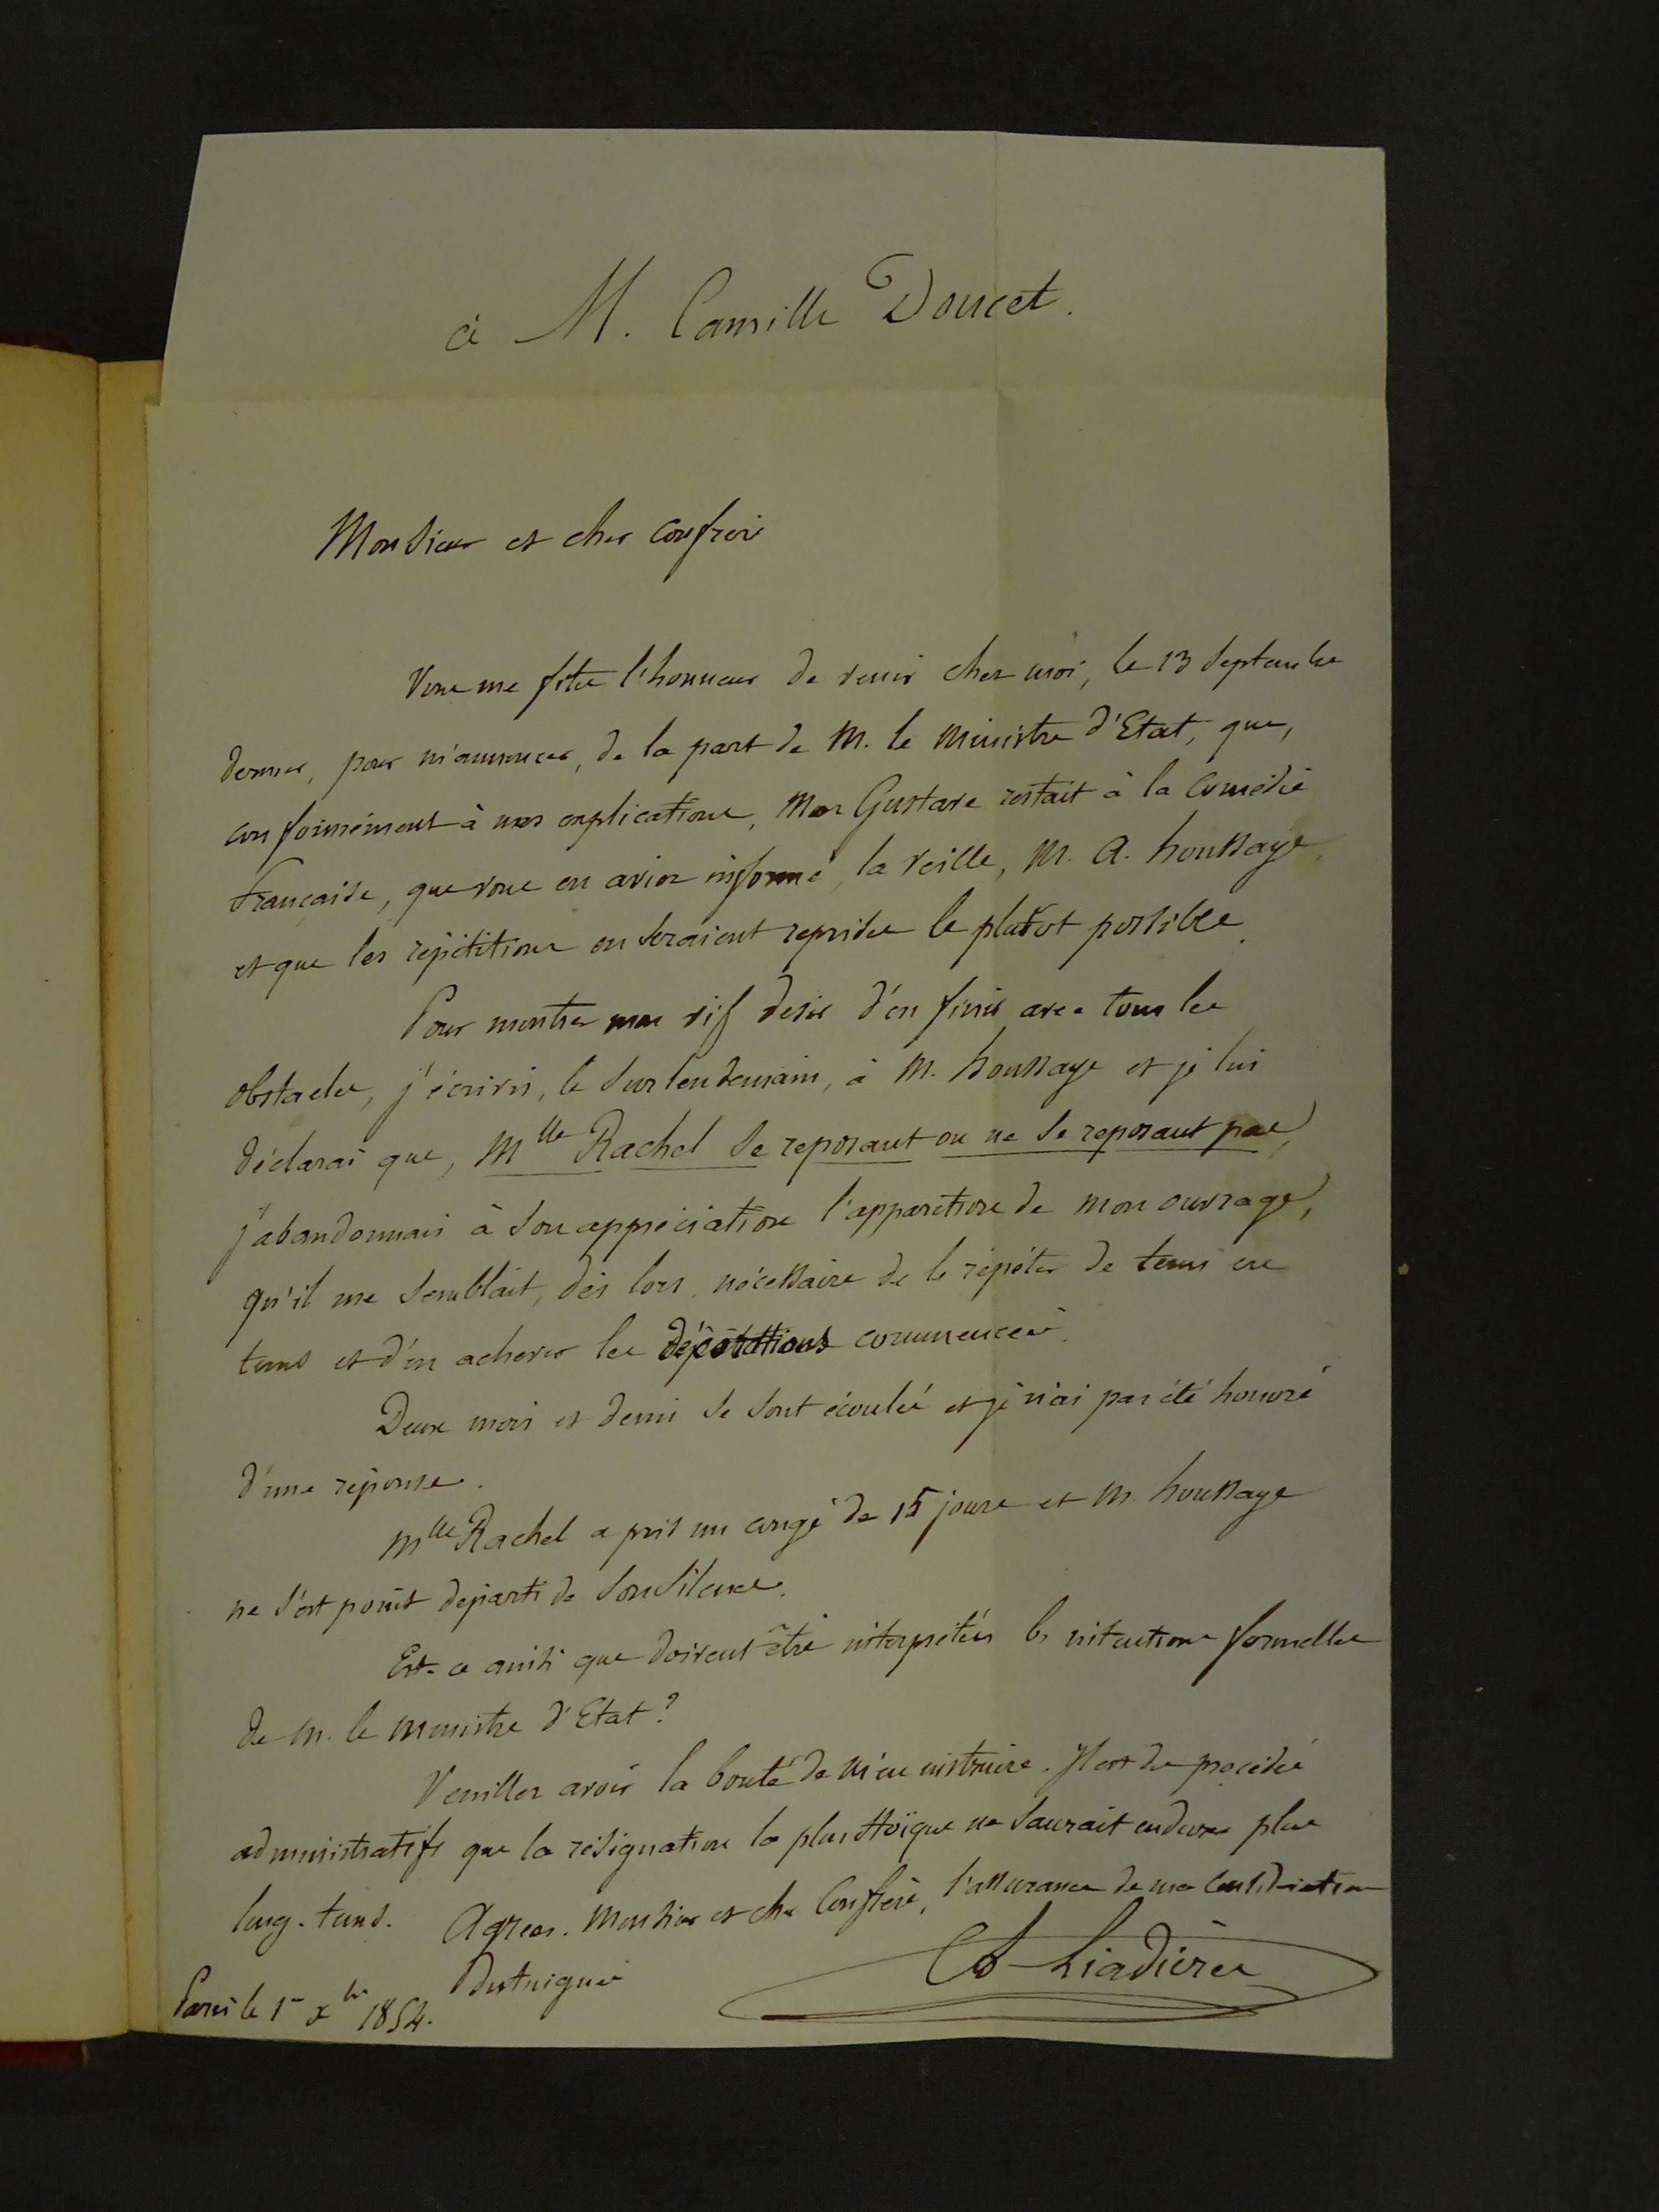 à M. Camille Doucet.
Monsieur et cher confrère
Vous me fites l'honneur de venir chez moi, le 13 Septembre
dernier, pour m'annoncer, de la part de M. le Ministre d'Etat, que,
conformément à nos explications, Mon Gustave restait à la Comédie
Française, que vous en aviez informé, la veille, M. A. houssaye,
et que les répétitions en seraient reprises le plutot possible.
Pour montrer mon vif desir d'en finir avec tous les
obstacles, j'écrivis, le surlendemain, à M. houssaye et je lui
déclarai que, Mlle Rachel se reposant ou ne se reposant pas,
j'abandonnais à son appréciation l'apparition de mon ouvrage,
qu'il me semblait, dès lors, nécessaire de le répéter de tems en
tems et d'en achever les décorations commencées.
Deux mois et demi se sont écoulés et je n'ai pas été honoré
d'une réponse.
Mlle Rachel a pris un congé de 15 jours et M. houssaye
ne s'est point départi de son silence.
Est-ce ainsi que doivent être interprétées les intentions formelles
de M. le Ministre d'Etat?
Veuillez avoir la bonté de m'en instruire. Il est des procédés
administratifs que la résignation la plus stoïque ne saurait endurer plus
long-tems. Agréez, Monsieur et cher Confrère, l'assurance de ma considération
distinguée
Ch Liadières
Paris le 1er xbre 1854.